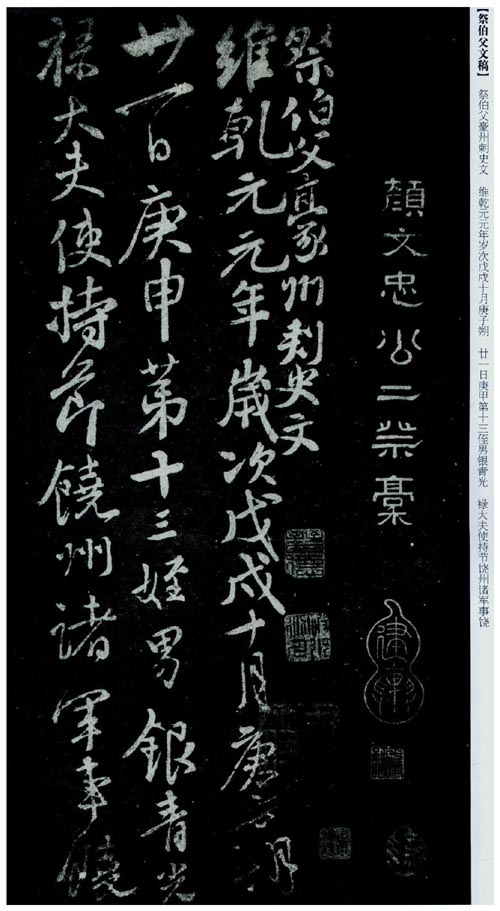 【祭伯父文稿】 祭伯父豪州刺史文 维乾元元年岁次戊戌十月庚子朔 廿一日庚甲第十三侄男银青光 禄大夫使持节饶州诸军事饶
顏文忠公二祭稾
祭伯父豪州刺史文
維乾元元年歲次戊戌十月庚子朔
廿一日庚申第十三姪男銀青光
祿大夫使持節饒州諸軍事饒